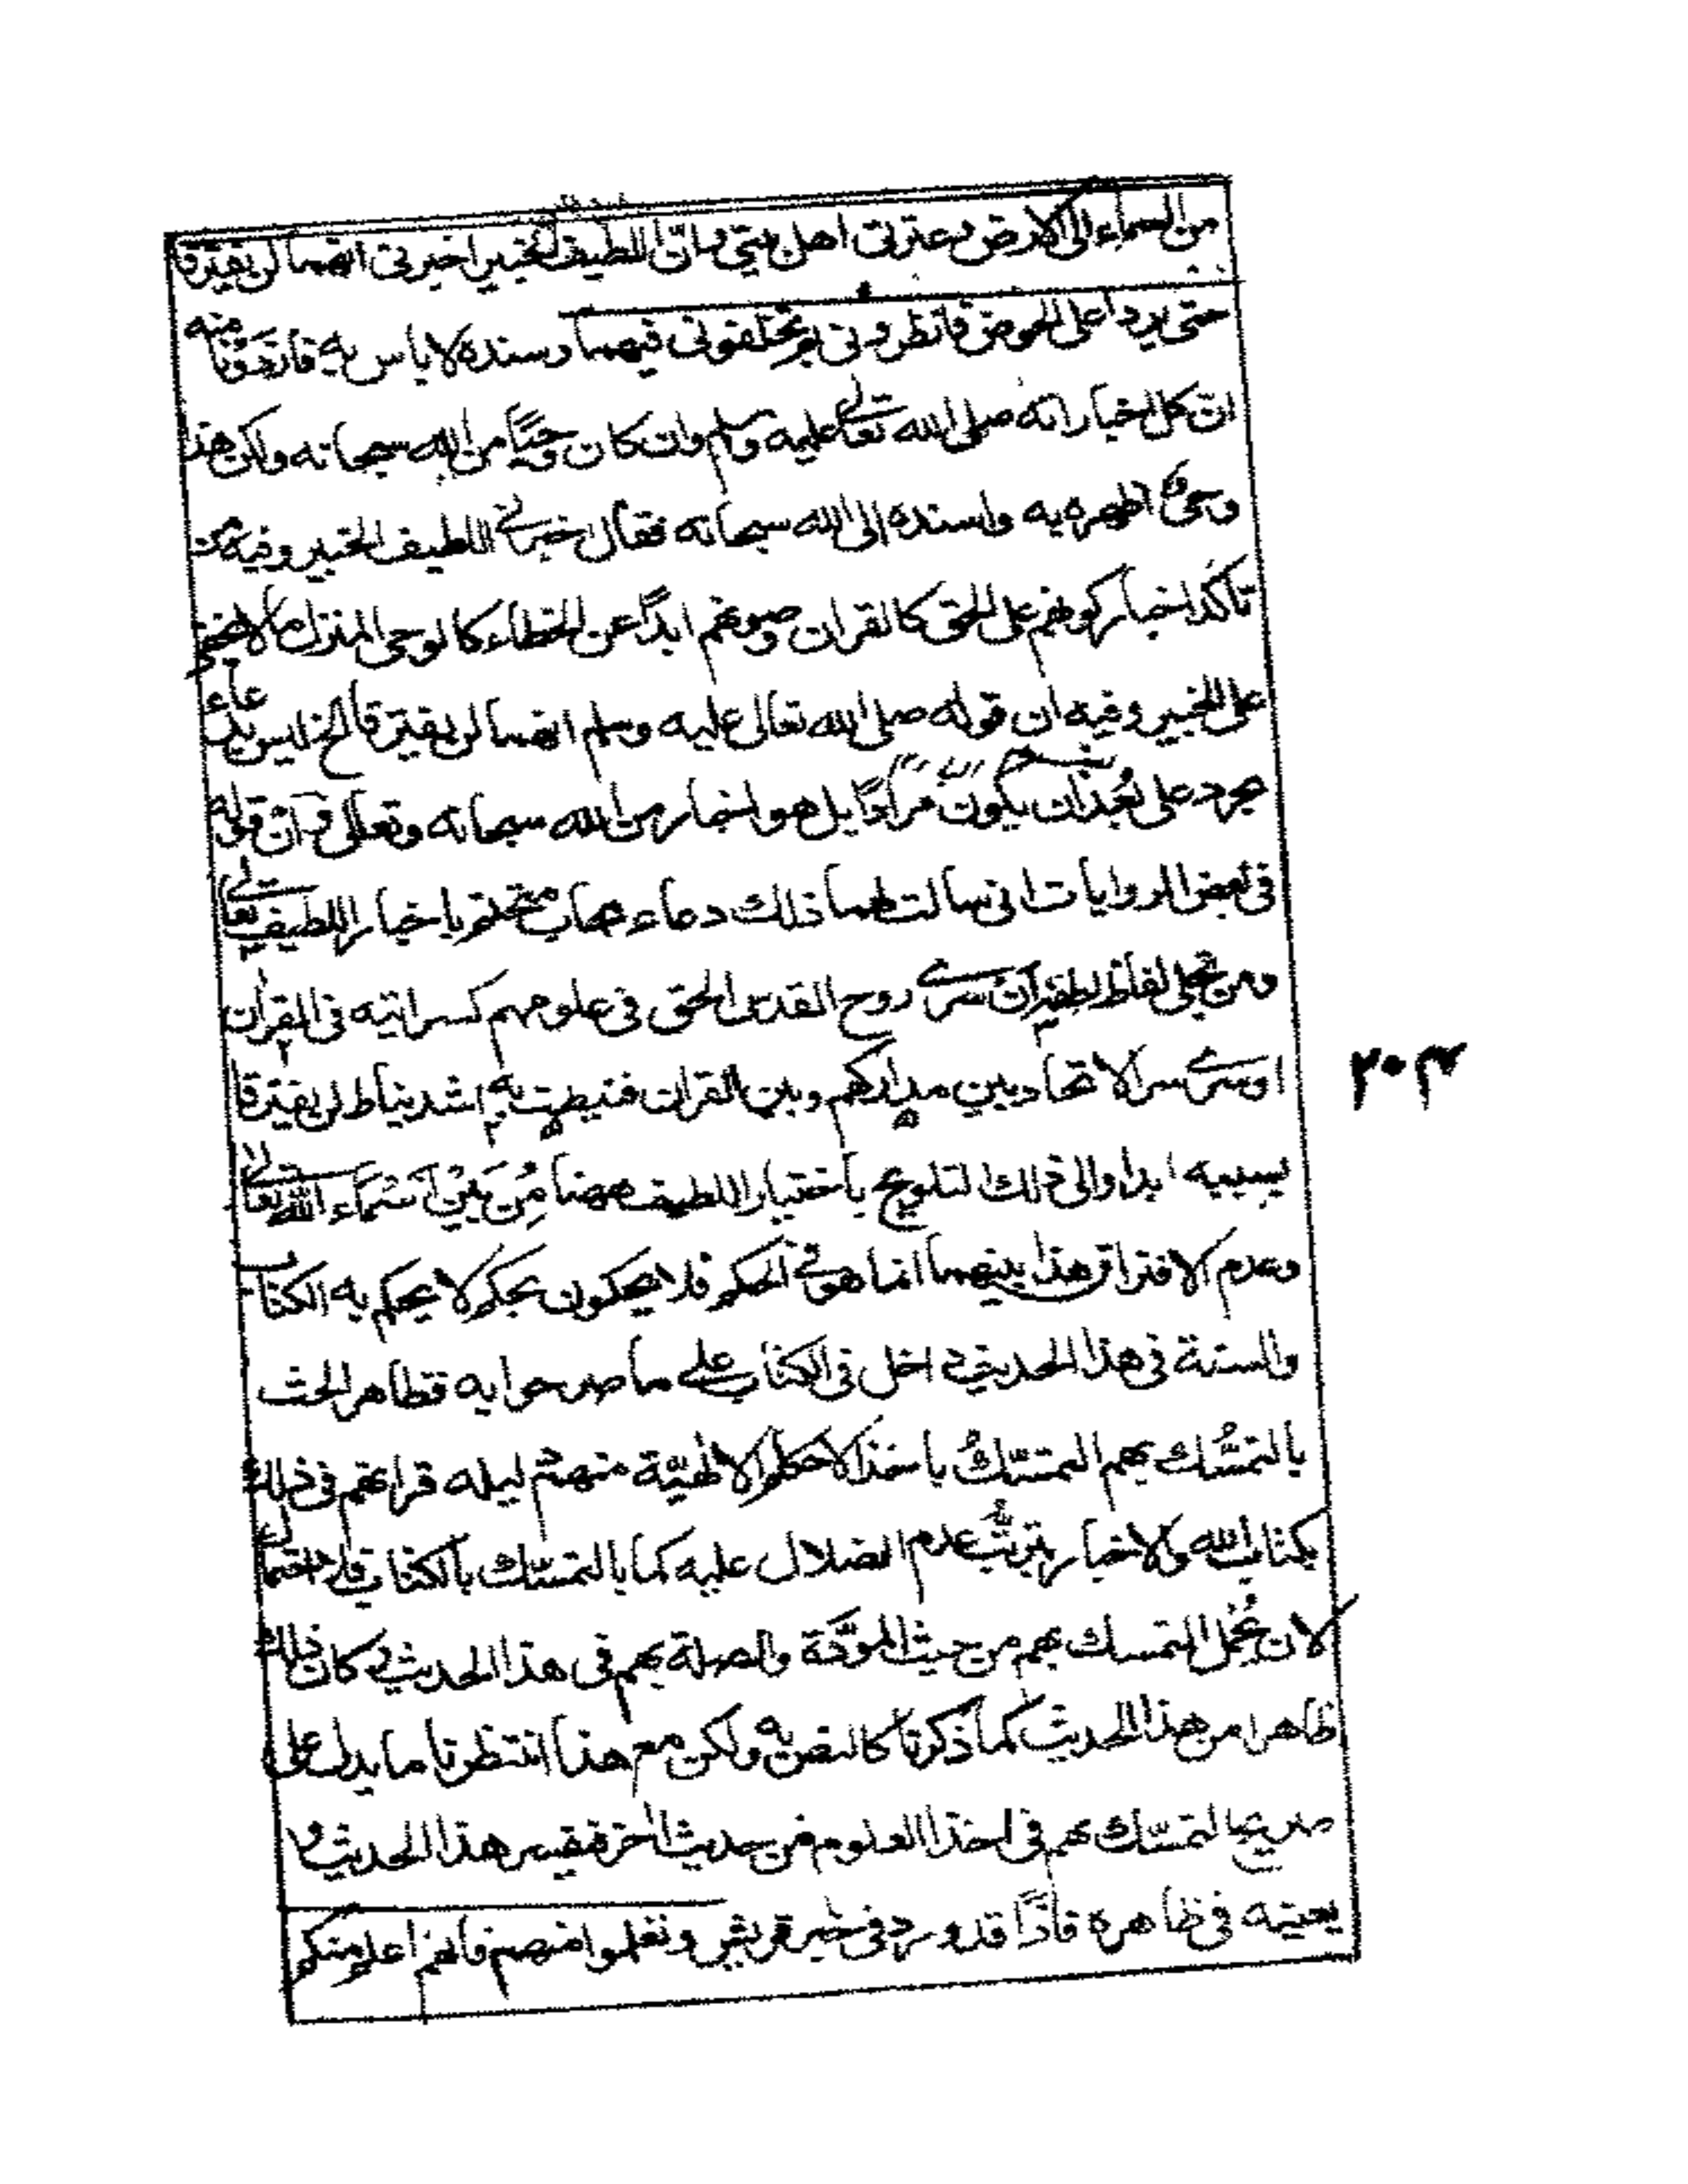 من السماء الى الارض وعترتى اهل بيتى وانّ اللطيف الخبير اخبرنى انهما لن يفترقا
حتى يردا على الحوض فانظرونى بم تخلفونى فيهما وسنده لا باس به فانتهونا منه
ان كل اخباراته صلى الله تعالى عليه وسلم وان كان وحيًا من الله سبحانه ولكن هذا
وحى اظهره به واسنده الى الله سبحانه فقال اخبرنى اللطيف الخبير وفيه من
تاكد اخبار كونهم على الحق كالقران وصونهم ابدًا عن الخطاء كالوحى المنزل ما لا يخفى
على الخبير وفيه ان قوله صلى الله تعالى عليه وسلم انهما لن يفترقا الخ ليس بدعاء
مجرد على بُعد ان يكون مرادًا بل هو اخبار من الله سبحانه وتعالى وان قوله
فى بعض الروايات انى سالت لهما ذلك دعاء مجاب متحتم باخبار اللطيف تعالى
ومن تجلى لفظ لطفه ان سرى روح القدس الحق فى علومهم كسرايته فى القرآن
او سرى سر الاتحاد بين مداركهم وبين القران فنيطت به اشد نياط لن يفترقا
بسببه ابدا والى ذلك التلويح باختيار اللطيف ههنا مِن بَيْن اَسْمَاء الله تعالى
وعدم الافتراق هذا بينهما انما هو فى الحكم فلا يحكمون بحكم لا يحكم به الكتاب
والسنة فى هذا الحديث داخل فى الكتاب على ما صرحوا به فظاهر الحث
بالتمسُّك بهم التمسّكُ باخذ الاحكام الالٰهيّة منهم ثم ليله قرانهم فى ذلك
بكتاب الله والاخبار بترتّب عدم الضلال عليه كما بالتمسّك بالكتاب فلا احتمال
لان يُحمل التمسك بهم من حيث المودّة والصلة بهم فى هذا الحديث وكان ذلك
ظاهرا من هذا الحديث كما ذكرنا كالنص به ولكن مع هذا انتظرنا ما يدل على
صريح التمسّك بهم فى اخذ العلوم من حديث اٰخر فيفسر هذا الحديث و
يعينه فى ظاهره فاذًا قد ورد فى خبر قريش وتعلموا منهم فانهم اعلم منكم
٢٠٣